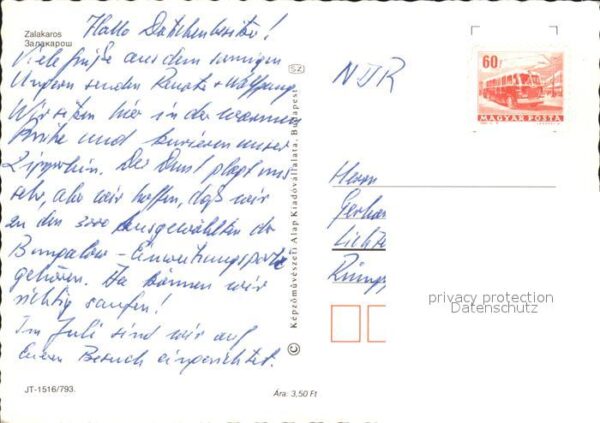 Zalakaros
Залакарош
Hallo Datschenbesitzer!
Viele Grüße aus dem sonnigen
Ungarn senden Renate + Wolfgang
Wir sitzen hier in der warmen
Brühe und kurieren unser
Zipperlein. Der Durst plagt uns
sehr, aber wir hoffen, daß wir
zu den 3000 Ausgewählten der
Bungalow - Einweihungsparty
gehören. Da können wir
richtig saufen!
Im Juli sind wir auf
Euren Besuch eingerichtet.
JT-1516/793.
Ára: 3,50 Ft
© Képzőművészeti Alap Kiadóvállalata, Budapest
SZ
NDR
60f
MAGYAR POSTA
Herrn
Gerha
Lichte
privacy protection
Datenschutz